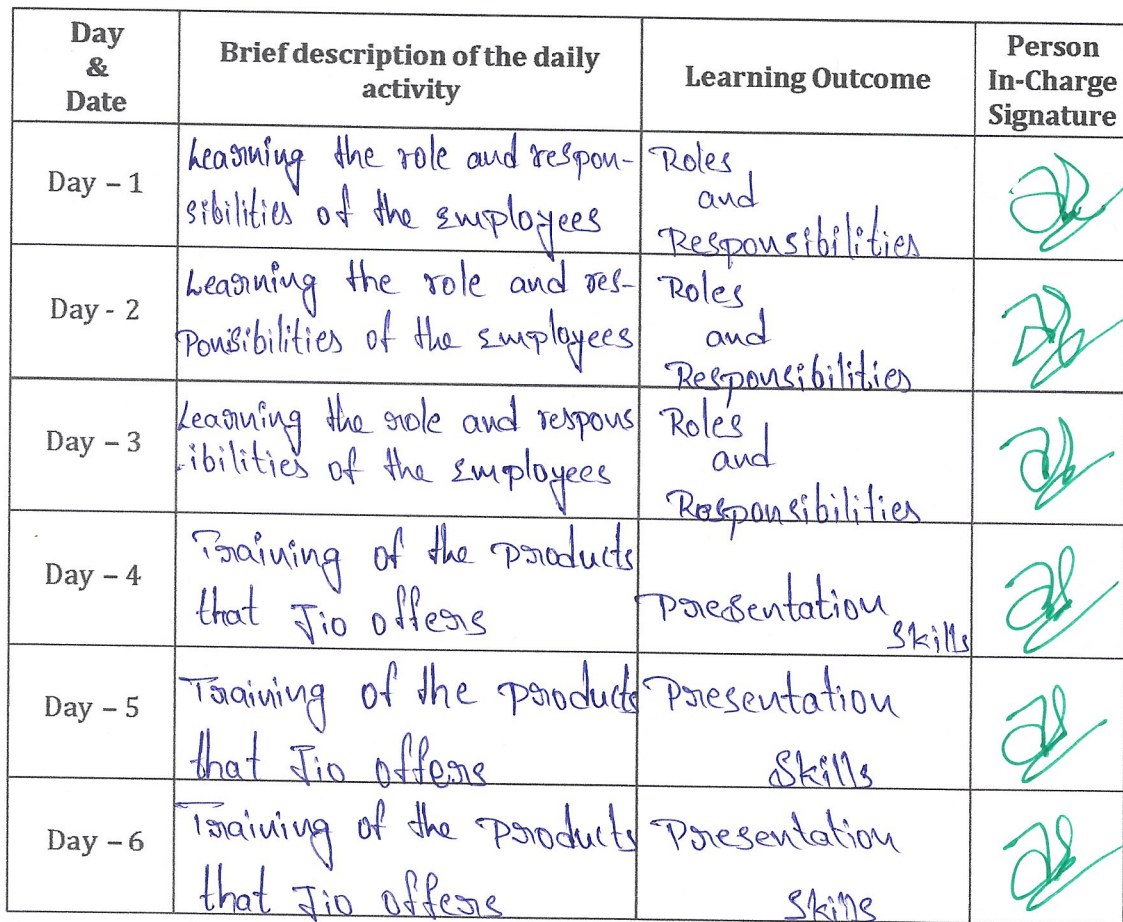 Day
&
Date
Brief description of the daily
activity
Learning Outcome
Person
In-Charge
Signature
Day – 1
Learning the role and respon-
sibilities of the Employees
Roles
and
Responsibilities
Day - 2
Learning the role and res-
Ponsibilities of the Employees
Roles
and
Responsibilities
Day – 3
Learning the role and respons
ibilities of the Employees
Roles
and
Responsibilities
Day – 4
Training of the Products
that Jio offers
Presentation
Skills
Day – 5
Training of the Products
that Jio offers
Presentation
Skills
Day – 6
Training of the Products
that Jio offers
Presentation
Skills